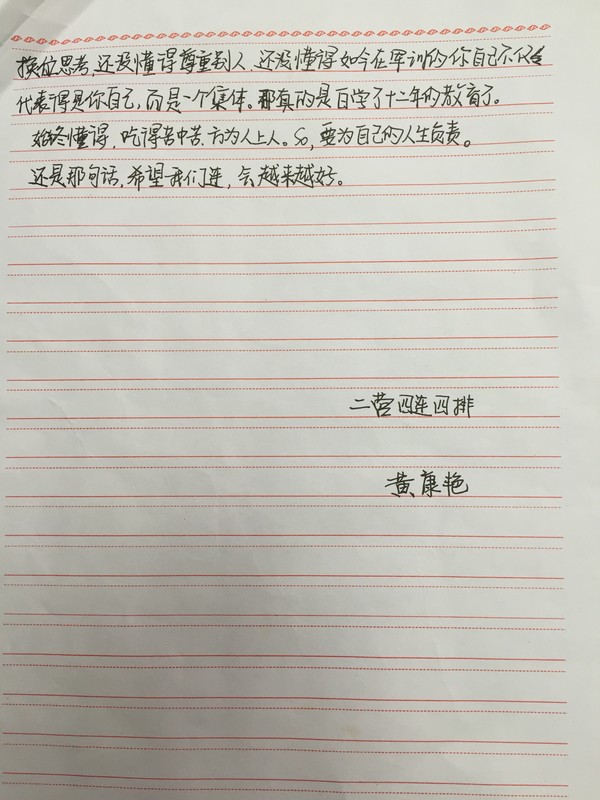 换位思考,还没懂得尊重别人,还没懂得如今在军训的你自己不仅仅
代表得是你自己,而是一个集体。那真的是白学了十二年的教育了。
始终懂得,吃得苦中苦,方为人上人。So,要为自己的人生负责。
还是那句话,希望我们连,会越来越好。
二营四连四排
黄康艳